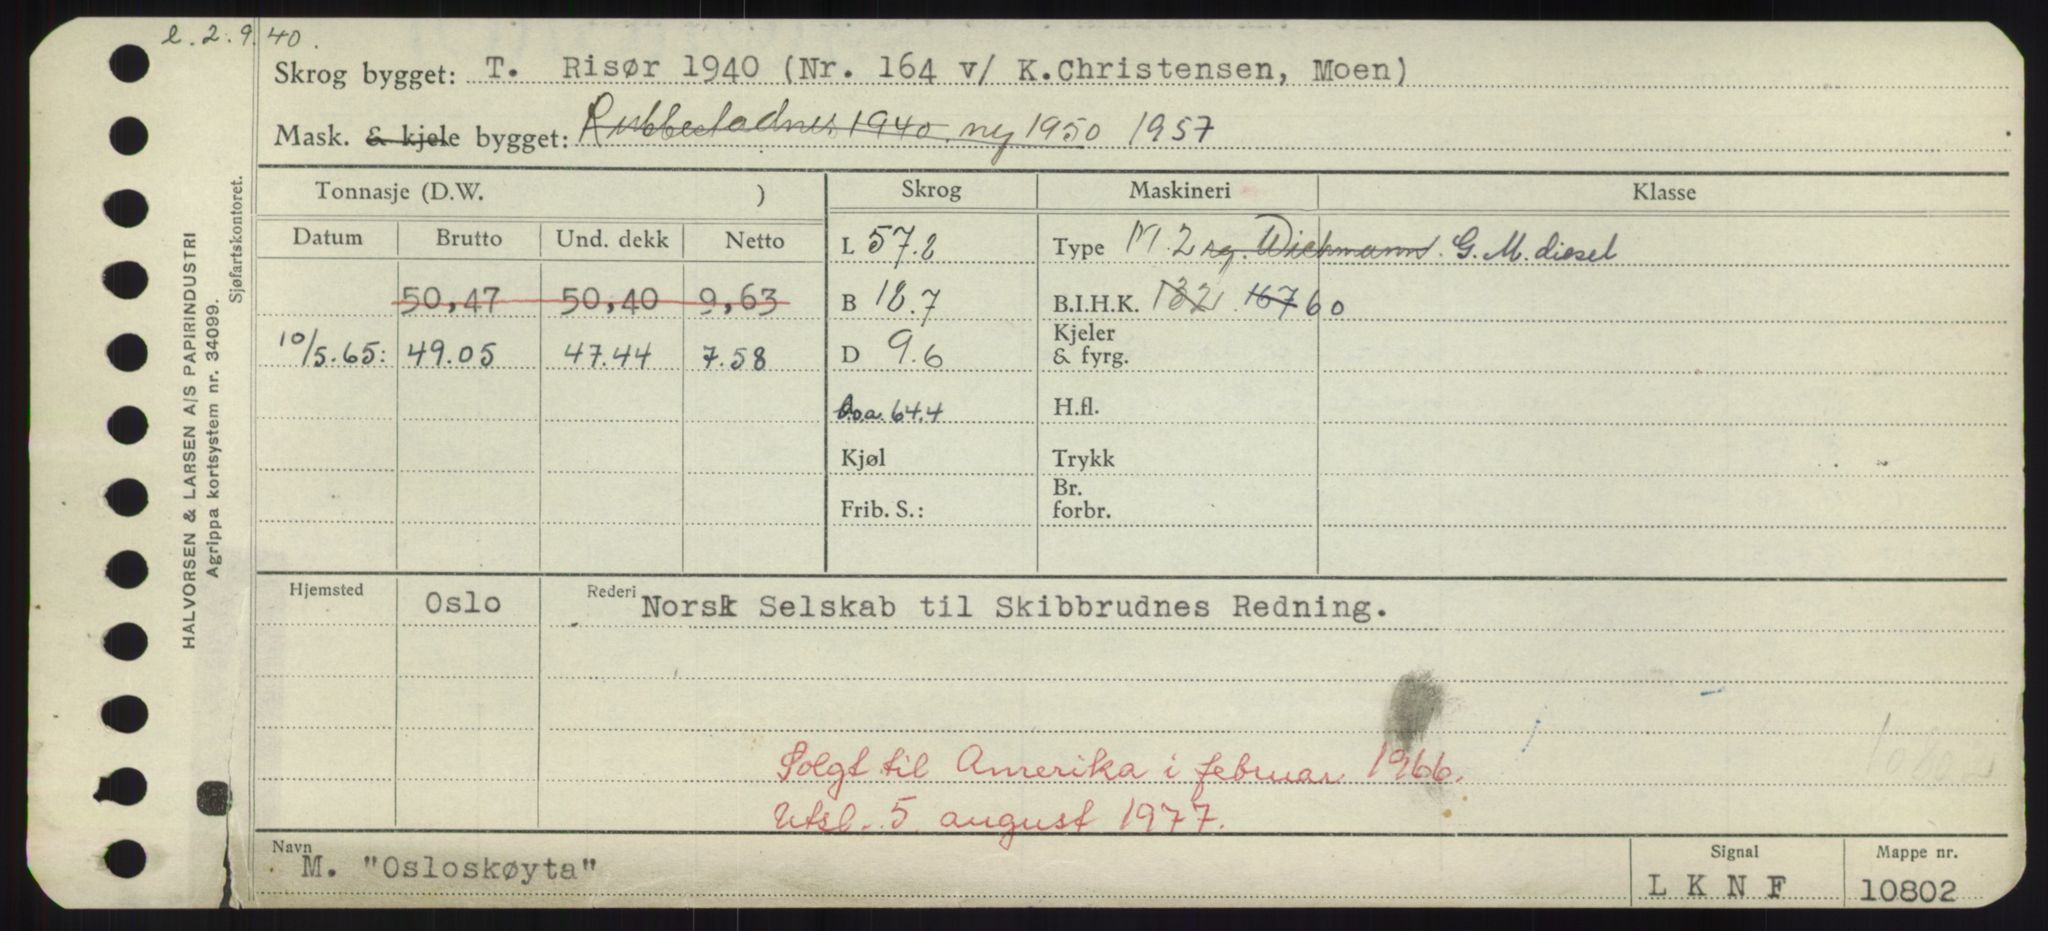 l. 2. 9. 40.
Skrog bygget: T. Risør 1940 (Nr. 164 v/ K.Christensen, Moen)
Mask. & kjele bygget: Rubbestadnes 1940. ny 1950 1957
Tonnasje (D.W. ) Skrog Maskineri Klasse
Datum Brutto Und. dekk Netto L 57.2 Type M. 2 sg. Wichmann. G. M. diesel
50,47 50,40 9,63 B 18.7 B.I.H.K. 132 167 60
10/5.65: 49.05 47.44 7.58 D 9.6 Kjeler & fyrg.
l.o.a. 64.4 H.fl.
Kjøl Trykk
Frib. S.: Br. forbr.
Hjemsted Oslo Rederi Norsk Selskab til Skibbrudnes Redning.
Solgt til Amerika i februar 1966.
Utsl. 5 august 1977.
Navn Signal Mappe nr.
M. "Osloskøyta" L K N F 10802
HALVORSEN & LARSEN A/S PAPIRINDUSTRI
Agrippa kortsystem nr. 34099.
Sjøfartskontoret.